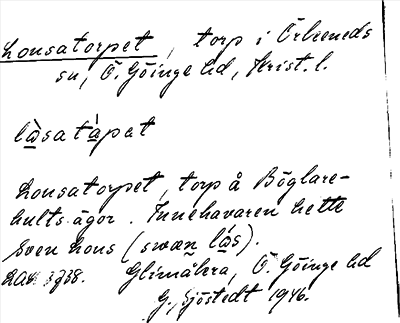 Lonsatorpet, torp i Örkeneds
sn, Ö. Göinge hd, Krist. l.
lɷ̀satápet
Lonsatorpet, torp å Böglare-
hults ägor. Innehavaren hette
Sven Lons (swæn lɷ́s).
Glimåkra, Ö. Göinge hd
G. Sjöstedt 1946.